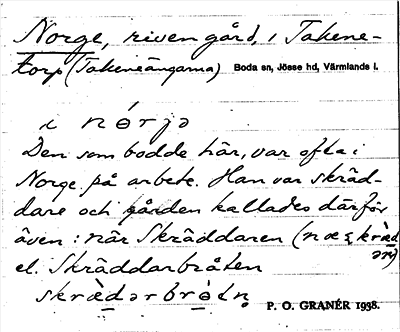 Norge, riven gård, i Takene-
torp (Takeneängarna) Boda sn, Jösse hd, Värmlands l.
i nɵ́rjə
Den som bodde här, var ofta i
Norge på arbete. Han var skräd-
dare och gården kallades därför
även: när Skräddaren
el. Skräddarbråten
P. O. GRANÉR 1938.